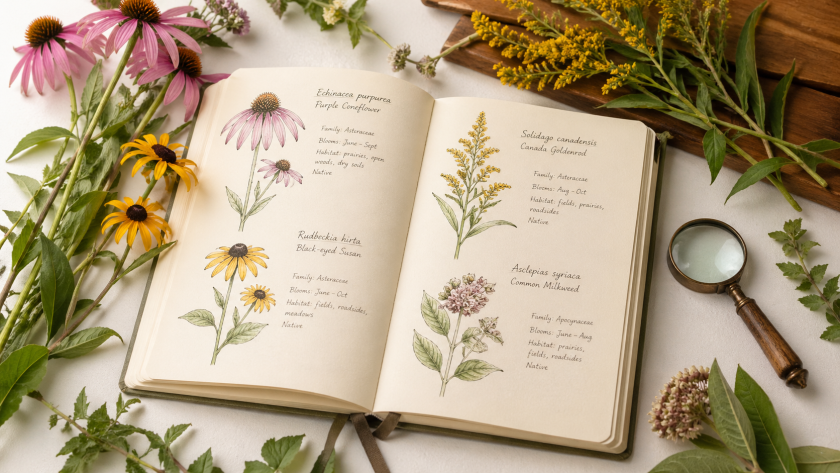 Echinacea purpurea
Purple Coneflower
Family: Asteraceae
Blooms: June – Sept
Habitat: prairies, open
woods, dry soils
Native
Rudbeckia hirta
Black-eyed Susan
Family: Asteraceae
Blooms: June – Oct
Habitat: fields, roadsides,
meadows
Native
Solidago canadensis
Canada Goldenrod
Family: Asteraceae
Blooms: Aug – Oct
Habitat: fields, prairies,
roadsides
Native
Asclepias syriaca
Common Milkweed
Family: Apocynaceae
Blooms: June – Aug
Habitat: prairies,
fields, roadsides
Native